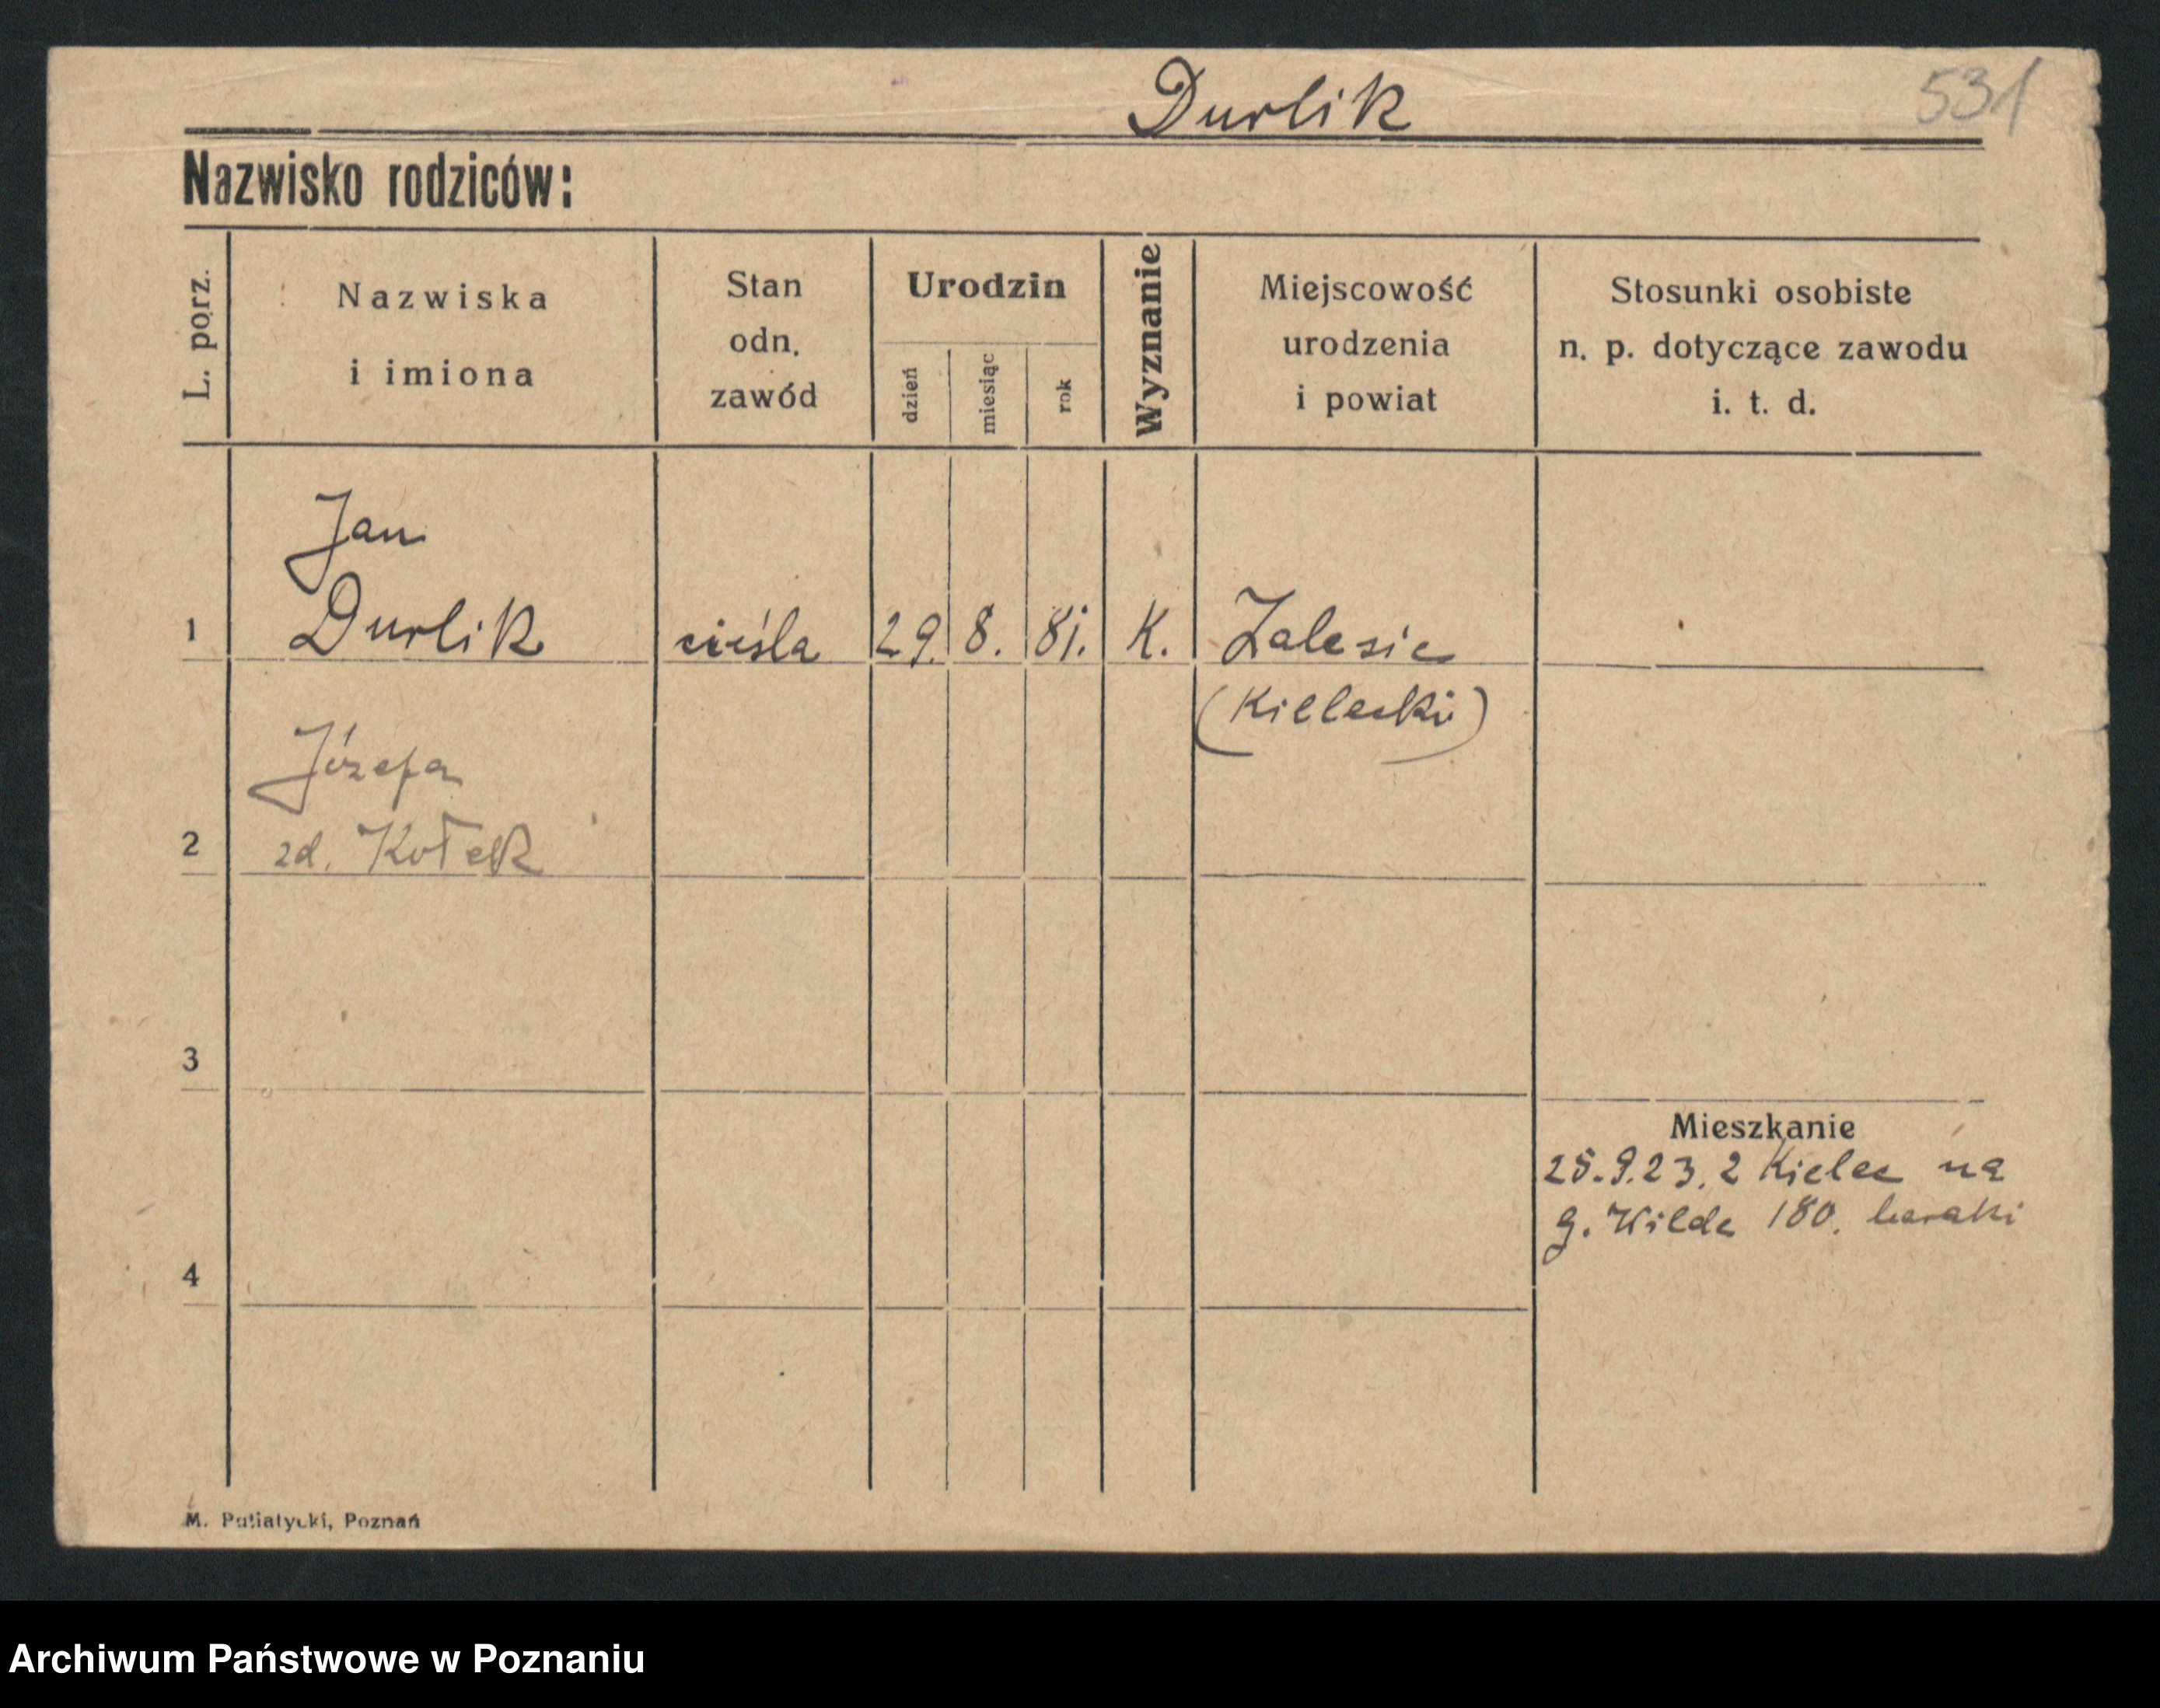 Durlik
531
Nazwisko rodziców:
L. porz.
Nazwiska
i imiona
Stan
odn.
zawód
Urodzin
dzień
miesiąc
rok
Wyznanie
Miejscowość
urodzenia
i powiat
Stosunki osobiste
n. p. dotyczące zawodu
i. t. d.
Jan
1 Durlik cieśla 29. 8. 81. K. Zalesie
(Kielecki)
Józefa
2 zd. Kołek
3
Mieszkanie
25.9.23. z Kielec na
g. Wilde 180. baraki
4
M. Putiatycki, Poznań
Archiwum Państwowe w Poznaniu